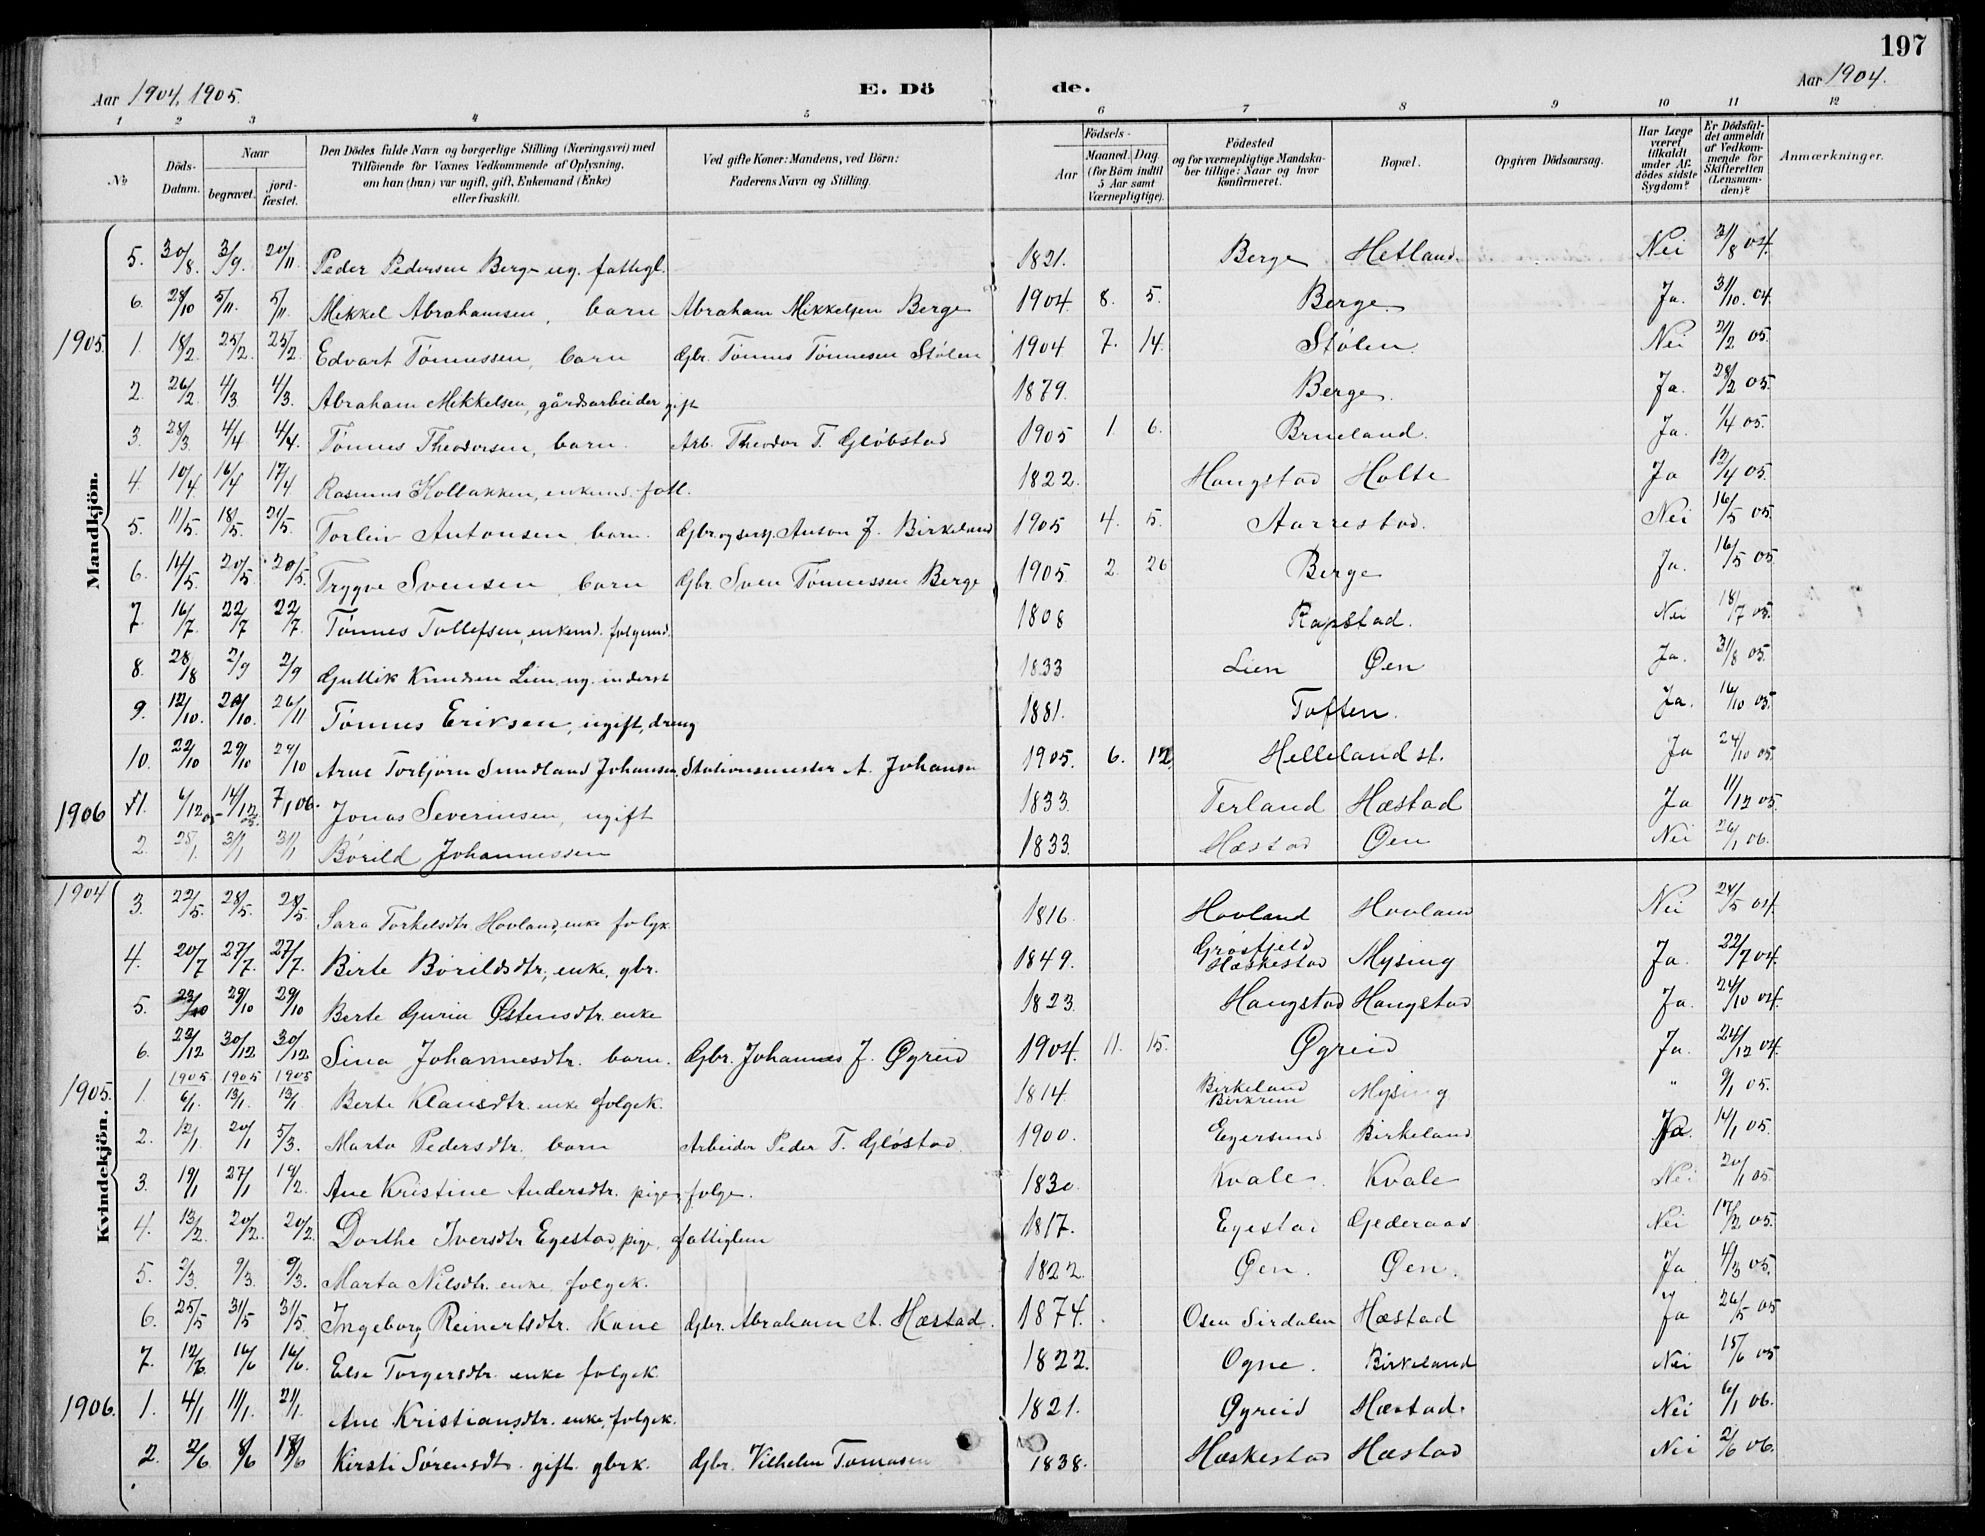 197
Aar 1904, 1905. E. Dö de. Aar 1904.
1 2 3 4 5 6 7 8 9 10 11 12
No Döds-Datum. Naar begravet. jord-fæstet. Den Dödes fulde Navn og borgerlige Stilling (Næringsvei) med Tilföiende for Voxnes Vedkommende af Oplysning, om han (hun) var ugift, gift, Enkemand (Enke) eller fraskilt. Ved gifte Koner: Mandens, ved Börn: Faderens Navn og Stilling. Födsels- Aar Maaned. Dag. (for Börn indtil 5 Aar samt Værnepligtige). Födested og for værnepligtige Mandskaber tillige: Naar og hvor konfirmeret. Bopæl. Opgiven Dödsaarsag. Har Læge været tilkaldt under Afdödes sidste Sygdom? Er Dödsfaldet anmeldt af Vedkommende for Skifteretten (Lensmanden)? Anmærkninger.
Mandkjön.
5. 30/8. 3/9. 20/11 Peder Pedersen Berge ug. fattigl. 1821. Berge Hetland. Nei 31/8 04.
6. 28/10 5/11. 5/11. Mikkel Abrahamsen, barn Abraham Mikkelsen Berge 1904. 8. 5. Berge. Ja. 31/10. 04.
1905. 1. 18/2. 25/2. 25/2. Edvart Tønnessen, barn Gbr. Tønnes Tønnesen Stølen 1904 7. 14. Stølen. Nei 21/2 05.
2. 26/2. 4/3 4/3. Abraham Mikkelsen, gårdsarbeider gift 1879. Berge. Ja. 28/2 05.
3. 28/3 4/4 4/4. Tønnes Theodorsen, barn. Arb. Theodor T. Gløbstad 1905 1. 6. Brueland. Ja. 1/4 05.
4. 10/4. 16/4 17/4 Rasmus Kollakken, enkemd. fatl. 1822. Hangstad Holte Ja 12/4 05.
5. 11/5. 18/5. 21/5. Torleiv Antonsen barn. Gbr. og sersj. Anton J. Birkeland 1905 4. 5. Aarrestad. Nei 16/5 05.
6. 14/5. 20/5. 20/5. Trygve Svensen barn Gbr. Sven Tønnessen Berge 1905. 2. 26 Berge Ja. 16/5 05
7. 16/7. 22/7 22/7. Tønnes Tollefsen, enkemd. folgemd. 1808 Rapstad. Nei 18/7 05.
8. 28/8 2/9 2/9 Gullik Knudsen Lien, ug. inderst 1833 Lien Øen Ja. 31/8 05.
9. 12/10. 20/10. 26/11 Tønnes Eriksen, ugift, dreng 1881. Toften. Ja. 16/10 05.
10. 22/10 29/10 29/10 Arne Torbjørn Sundland Johansen, Stationsmester A. Johansen 1905. 6. 12. Helleland st. Ja 24/10 05.
1906 11. 6/12 05 14/12 05. 7/1 06. Jonas Severinsen, ugift 1833. Terland Hæstad Ja 11/12 05.
2. 25/1. 31/1 31/1 Børild Johannessen 1833. Hæstad Øen Nei 26/1 06.
Kvindekjön.
1904 3. 22/5. 28/5. 28/5. Sara Torkelsdtr Hovland, enke folgk. 1816. Hovland Hovland Nei 24/5 04.
4. 20/7 27/7. 27/7. Berte Børildsdtr, enke, gbr. 1849. Grøsfjeld Hæskestad Mysing Ja. 22/7 04.
5. 23/10 29/10 29/10 Berte Guria Østensdtr. enke 1823. Hangstad Hangstad Ja. 24/10 04.
6. 23/12 30/12 30/12. Sina Johannesdtr. barn. Gbr. Johannes J. Øgreid 1904. 11. 15. Øgreid Ja. 24/12 04.
1905. 1. 1905 6/1. 1905 13/1. 1905 13/1 Berte Klausdtr. enke folgek. 1814. Birkeland Birkrem Mysing " 9/1 05.
2. 12/1 20/1 5/3. Marta Pedersdtr. barn Arbeider Peder T. Gløstad. 1900. Egersund Birkeland Ja. 14/1 05.
3. 19/1 27/1 19/2. Ane Kristine Andersdtr. pige, folge. 1830. Kvale. Kvale Nei 20/1 05.
4. 13/2. 20/2. 20/2. Dorthe Iversdtr Egestad, pige, fattiglem 1817. Egestad Gjederaas Nei 17/2 05.
5. 2/3. 9/3. 9/3. Marta Nilsdtr. enke, folgek. 1822. Øen. Øen. Ja 4/3 05.
6. 25/5 31/5 31/5 Ingeborg Reinertsdtr. Kone Gbr. Abraham A. Hæstad. 1874. Osen Sirdalen Hæstad Ja 26/5 05
7. 12/6. 16/6 16/6. Else Torgersdtr. enke folgek. 1822. Ogne. Birkeland Nei 15/6 05
1906. 1. 4/1 11/1. 21/1. Ane Kristiansdtr. enke, folgek. 1821. Øgreid Hæstad. Nei 6/1 06.
2. 2/6. 8/6 18/6 Kirsti Sørensdtr. gift. gbrk. Gbr. Vilhelm Tomasen 1838. Hæskestad Hæstad Nei 2/6 06.